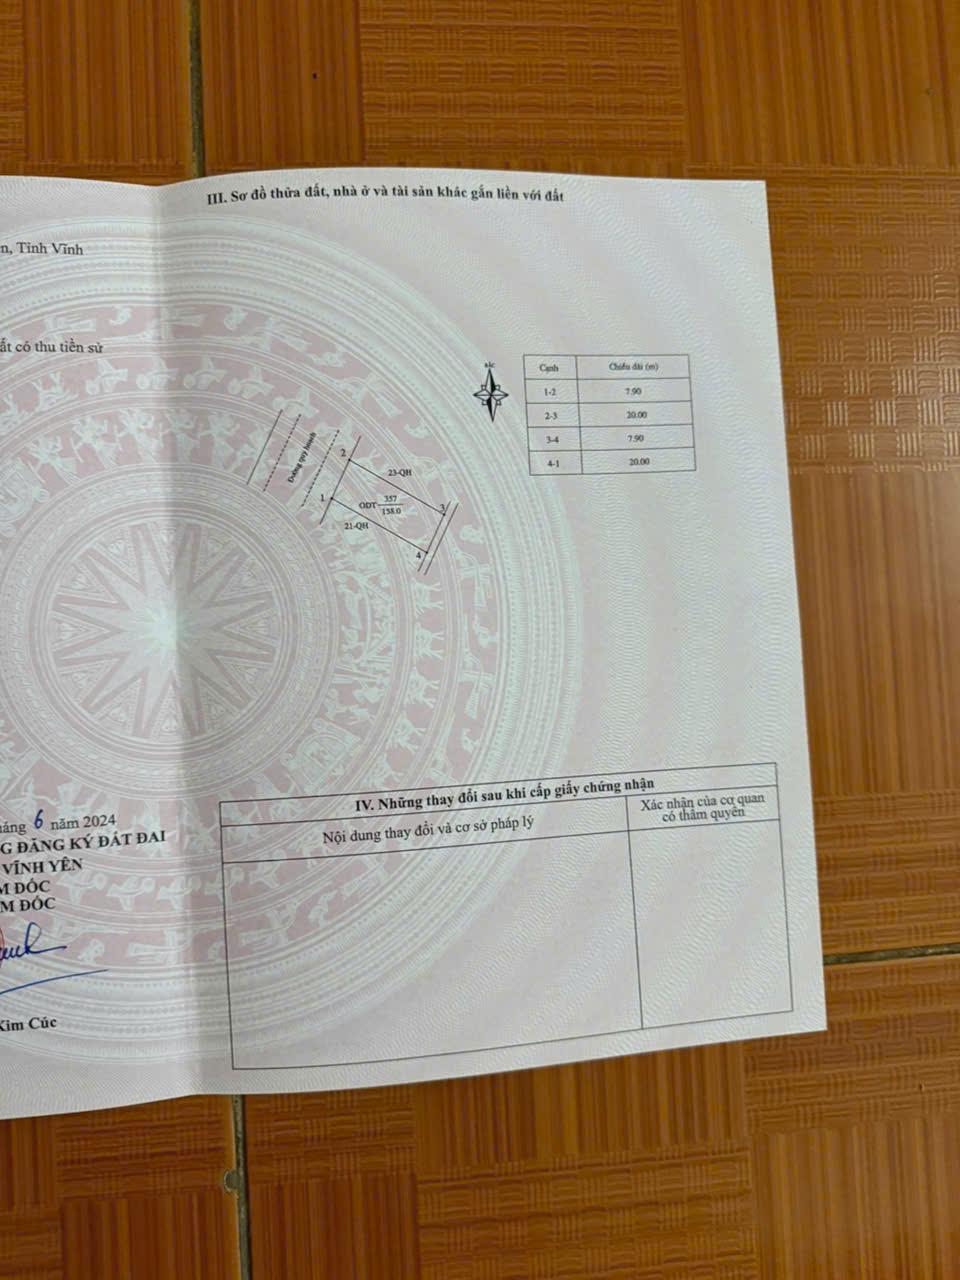 III. Sơ đồ thửa đất, nhà ở và tài sản khác gắn liền với đất
n, Tỉnh Vĩnh
ất có thu tiền sử
BẮC
Cạnh Chiều dài (m)
1-2 7.90
2-3 20.00
3-4 7.90
4-1 20.00
Đường quy hoạch
2
23-QH
1
ODT 357
158.0
3
21-QH
4
IV. Những thay đổi sau khi cấp giấy chứng nhận
Nội dung thay đổi và cơ sở pháp lý
Xác nhận của cơ quan
có thẩm quyền
háng 6 năm 2024
G ĐĂNG KÝ ĐẤT ĐAI
VĨNH YÊN
M ĐỐC
M ĐỐC
Kim Cúc